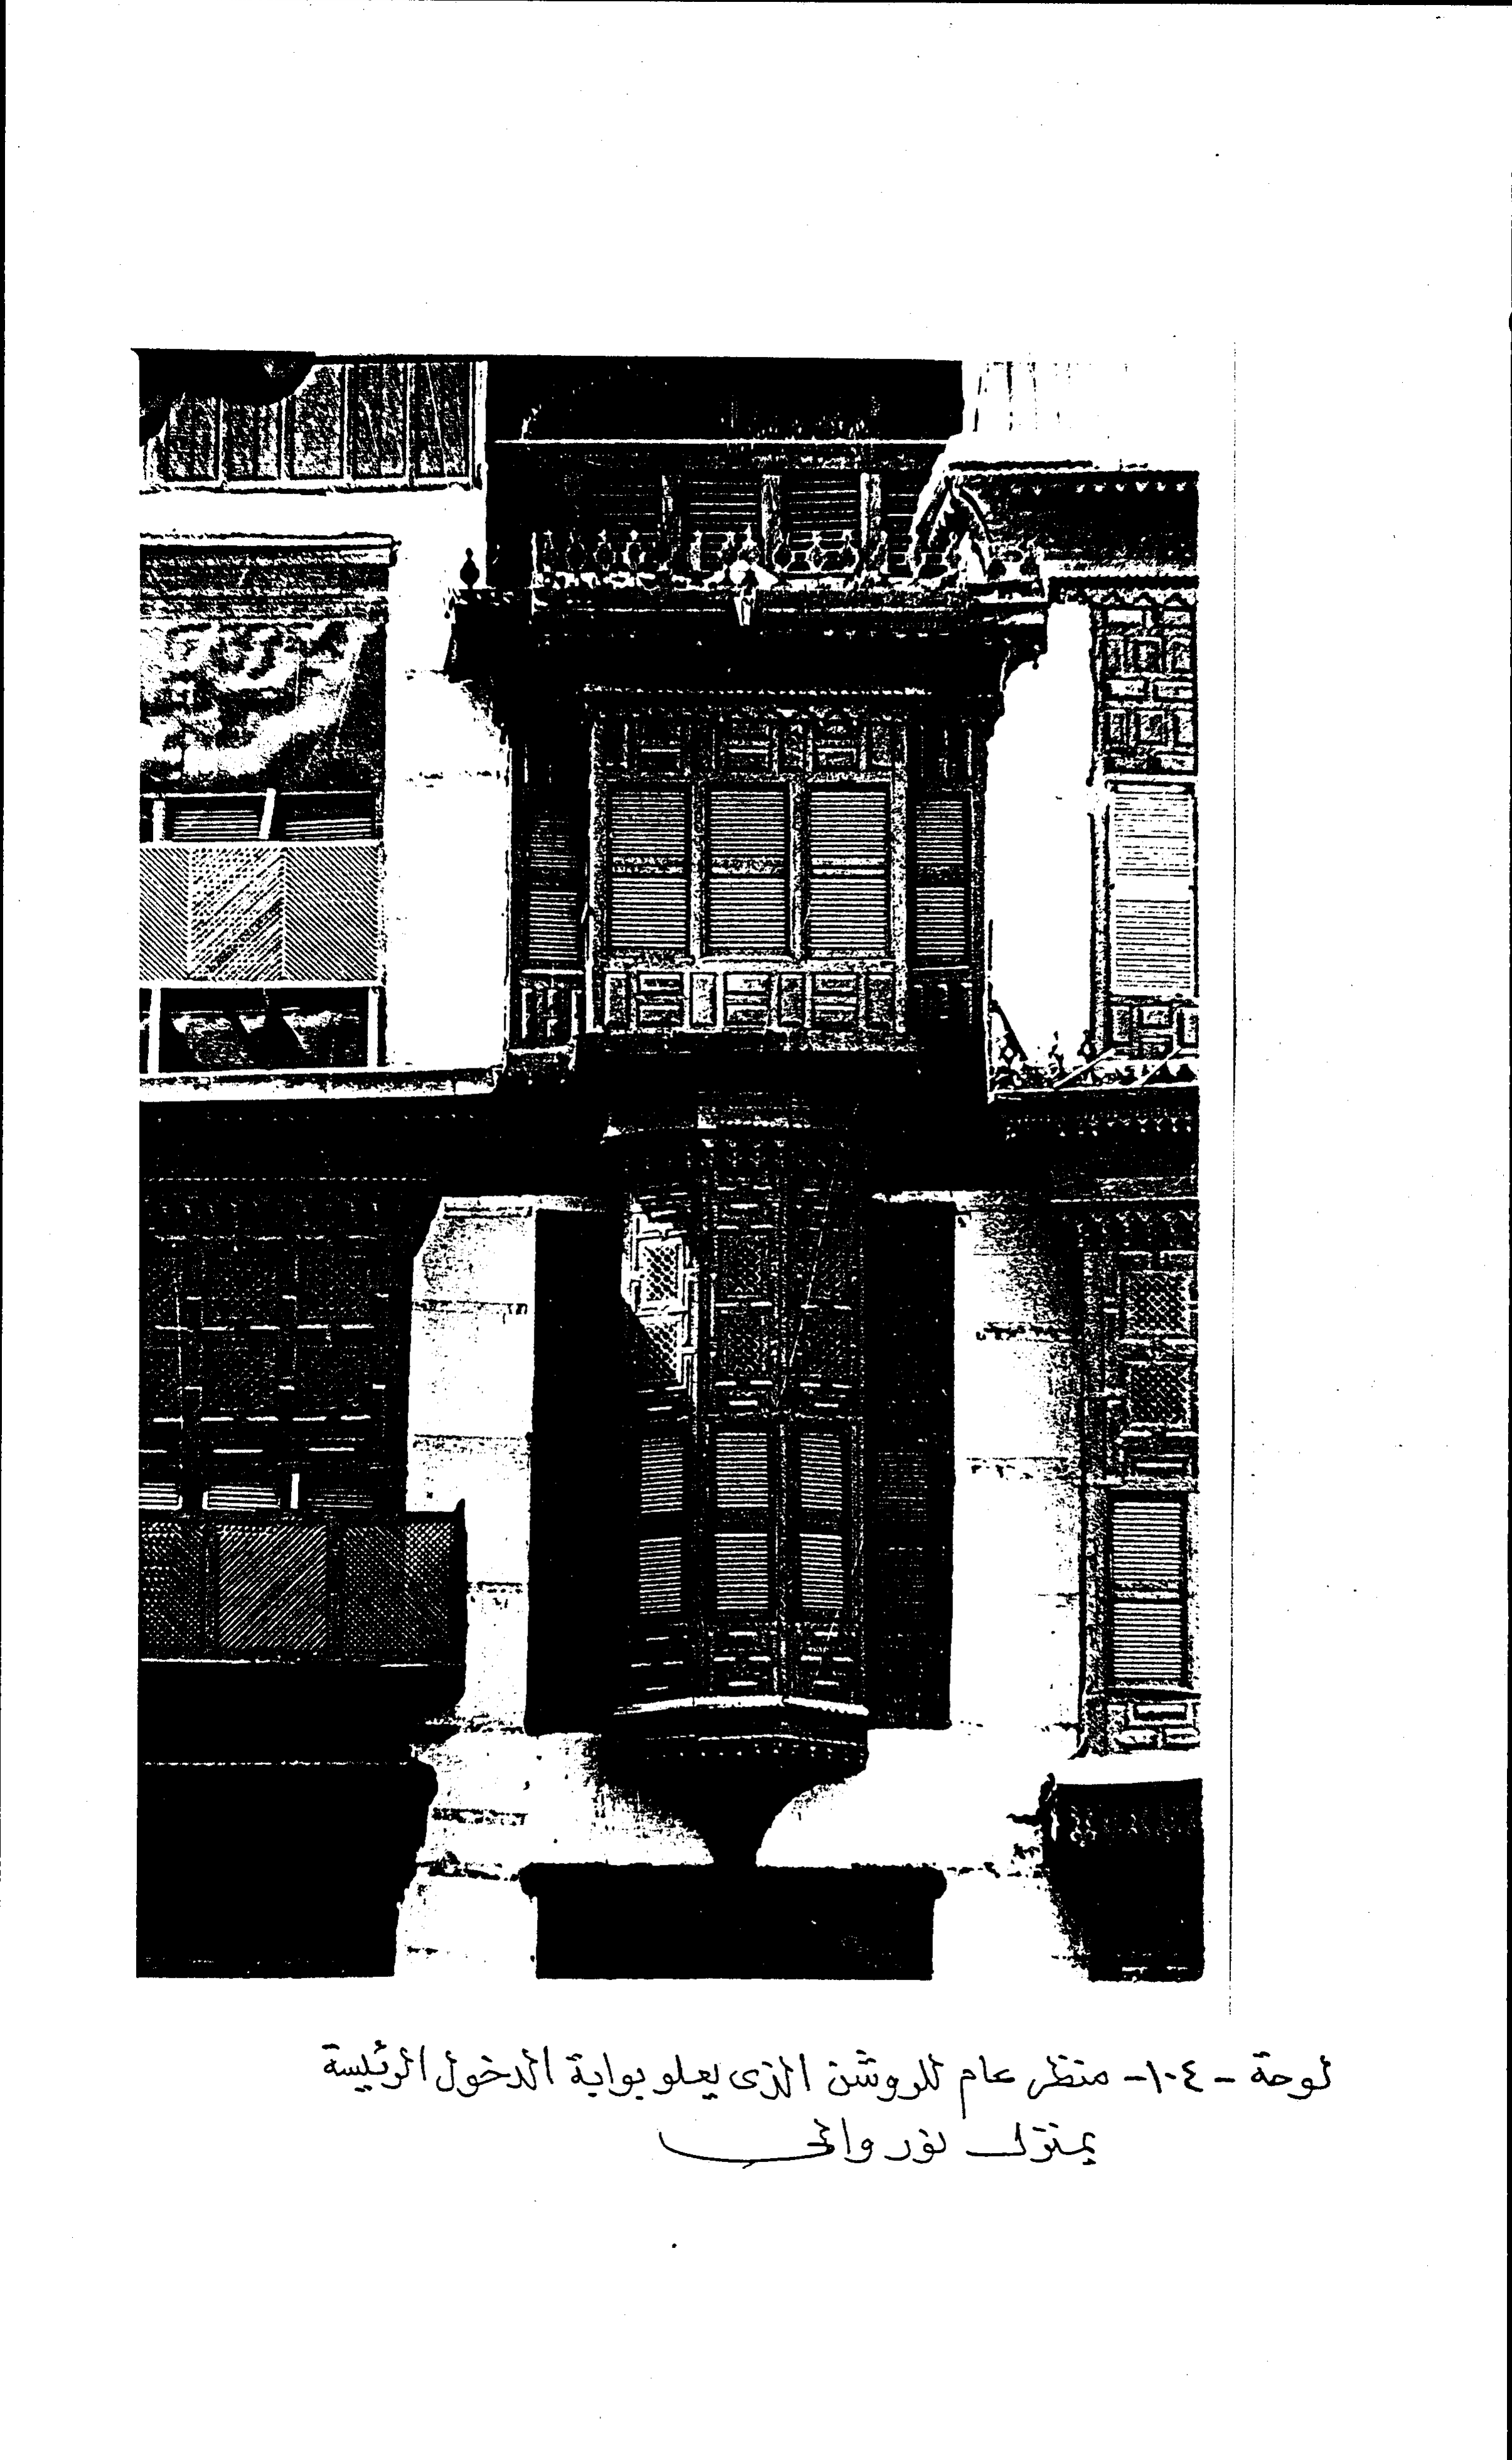 لوحة - ١٠٤- منظر عام للروشن الذى يعلو بوابة الدخول الرئيسة
بمنزل نور والى